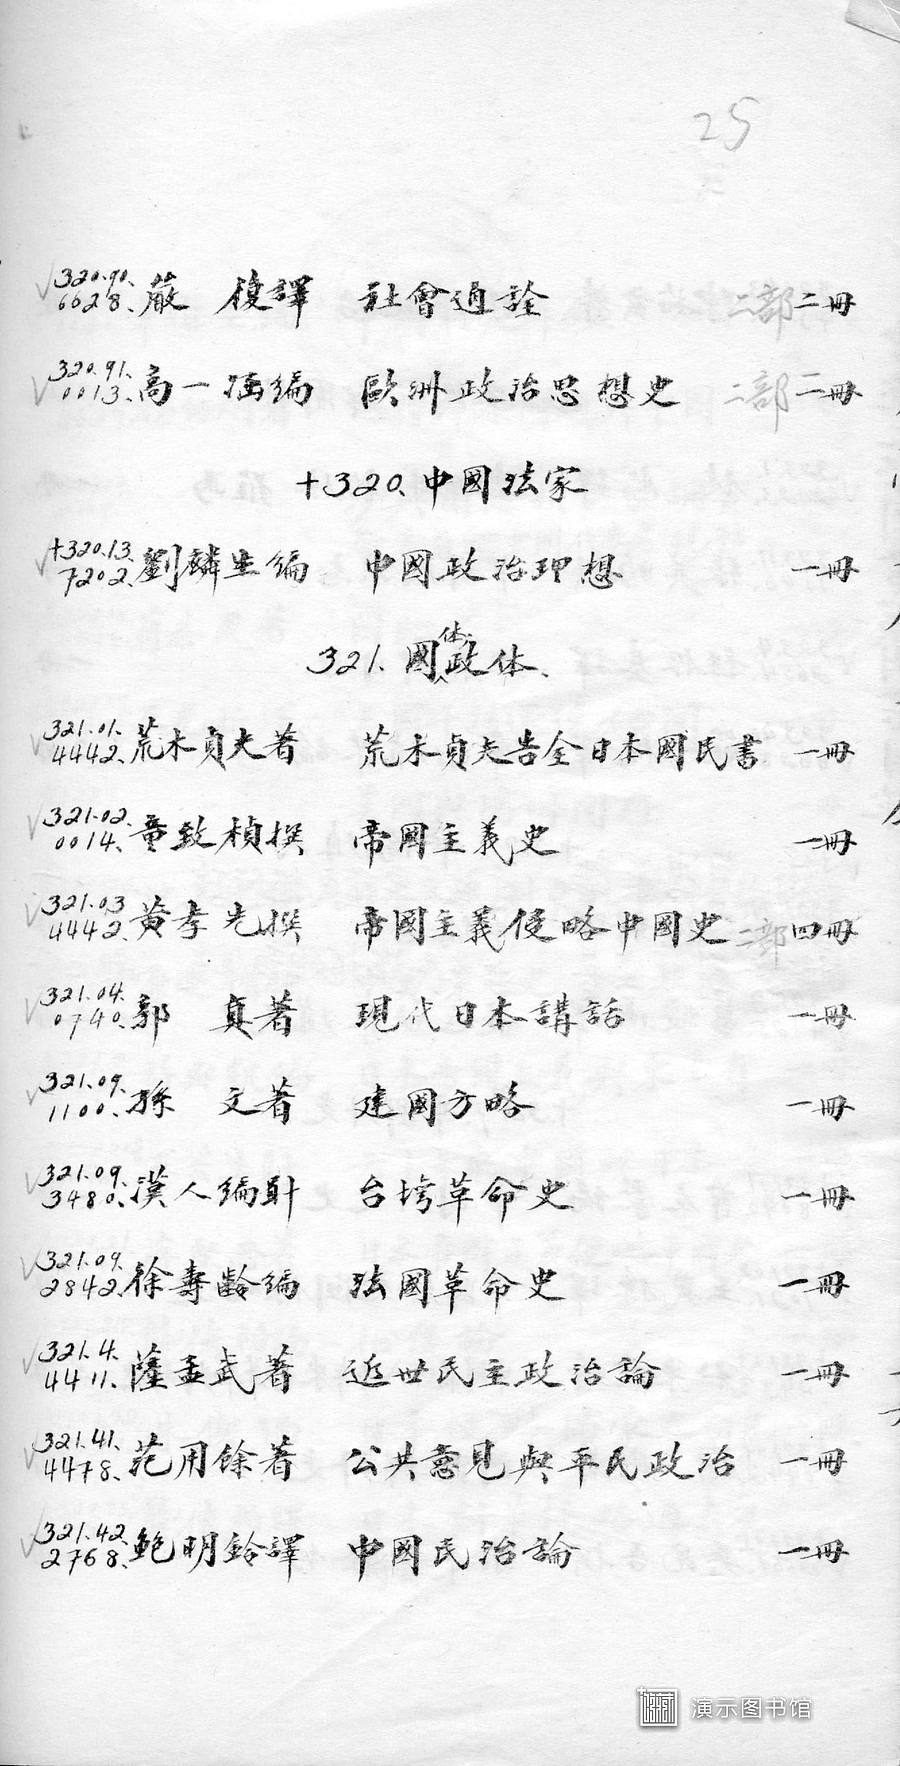 25
320.90. 6028. 嚴 復譯 社會通詮 二部 二冊
320.91. 0013. 高一涵編 歐洲政治思想史 二部 二冊
+320. 中國法家
+320.13. 7202. 劉麟生編 中國政治理想 一冊
321. 國体政体.
321.01. 4442. 荒木貞夫著 荒木貞夫告全日本國民書 一冊
321.02. 0014. 童致楨撰 帝國主義史 一冊
321.03 4442. 黃孝先撰 帝國主義侵略中國史 二部 四冊
321.04. 0740. 郭 真著 現代日本講話 一冊
321.09. 1100. 孫 文著 建國方略 一冊
321.09. 3480. 漢人編 台灣革命史 一冊
321.09. 2842. 徐壽齡編 法國革命史 一冊
321.4. 4411. 薩孟武著 近世民主政治論 一冊
321.41. 4478. 范用餘著 公共意見與平民政治 一冊
321.42. 2768. 鮑明鈐譯 中國民治論 一冊
演示图书馆